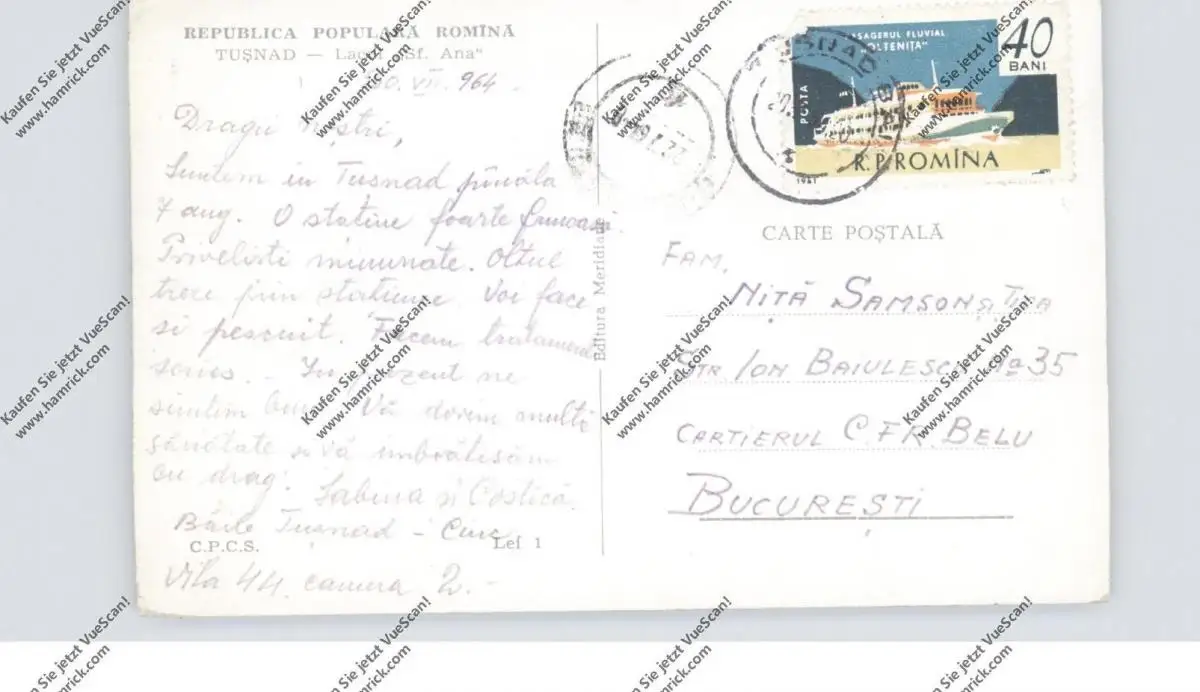 REPUBLICA POPULARĂ ROMÎNĂ
TUŞNAD — Lacul „Sf. Ana"
VII. 964
Dragii Noștri,
Suntem in Tușnad pînăla
7 aug. O stațiune foarte frumoasă.
Priveliști minunate. Oltul
trece prin stațiune. Voi face
și pescuit. Facem tratament
serios. – In prezent ne
simțim bine. Vă dorim multă
sănătate și vă îmbrățișăm
cu drag. Sabina și Costică.
Băile Tușnad – Ciuc
C.P.C.S. Lei 1
Vila 44 camera 2.-
Editura Meridiane
PASAGERUL FLUVIAL
"OLTENIŢA"
40
BANI
POSTA
R.P.ROMÎNA
1961
TUSNAD
CARTE POŞTALĂ
FAM.
NIȚĂ SAMSON ȘI
STR ION BAIULESCU No 35
CARTIERUL C.F.R. BELU
BUCUREȘTI
Kaufen Sie jetzt VueScan!
www.hamrick.com